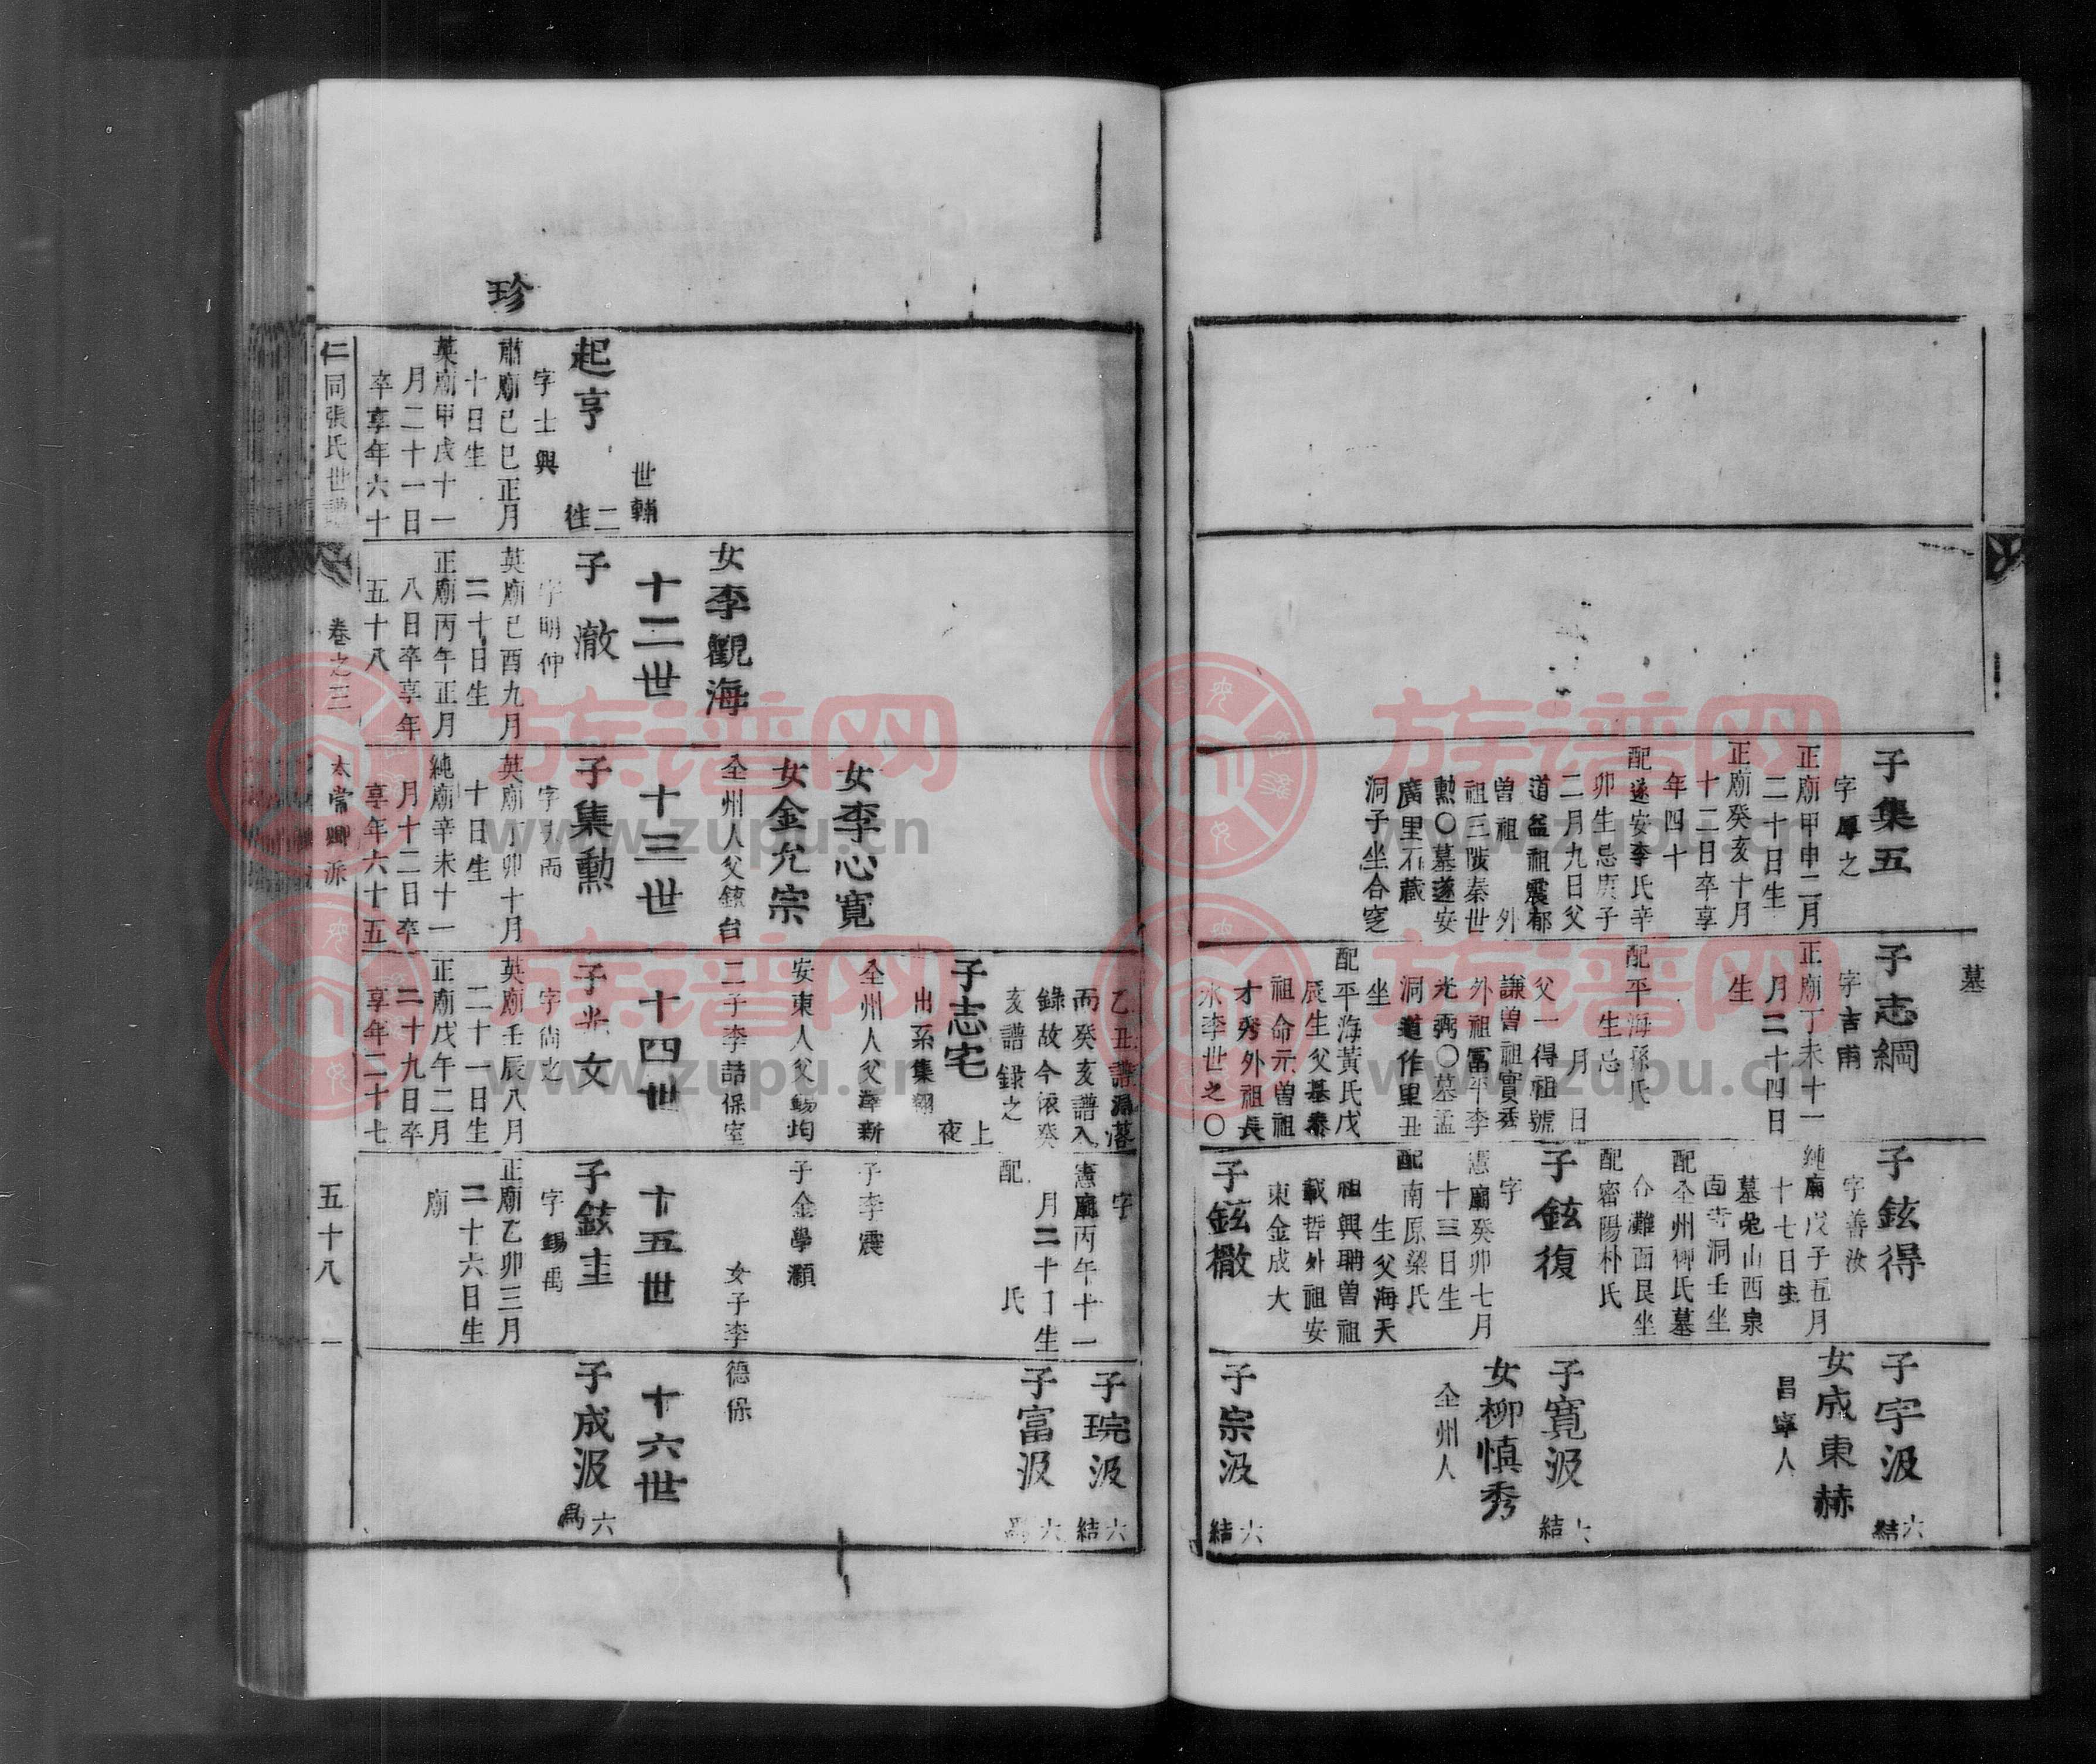 墓
子集五
字厚之
正廟甲申二月
二十日生
正廟癸亥十月
十二日卒享
年四十
配遂安李氏辛
卯生忌庚子
二月九日父
道益祖震郁
曾祖 外
祖三陟秦世
勲○墓遂安
廣里石蔵
洞子坐合窆
子志綱
字吉甫
正廟丁未十一
月二十四日
生
配平海孫氏
生忌
月 日
父一得祖號
謙曾祖實秀
外祖冨平李
光弼○墓孟
洞道作里丑
坐
配平海黃氏戊
辰生父基泰
祖命元曾祖
才秀外祖長
水李世之○
子鉉得
字善汝
純廟戊子五月
十七日生
墓兎山西泉
面寺洞壬坐
配全州柳氏墓
合灘面艮坐
配密陽朴氏
子鉉復
字
憲廟癸卯七月
十三日生
配南原梁氏
生父海天
祖興聃曾祖
載哲外祖安
東金成大
子鉉轍
子宇汲
六結
女成東赫
昌寧人
子寬汲
六結
女柳慎秀
全州人
子宗汲
六結
乙丑譜漏落
而癸亥譜入
錄故今依癸
亥譜錄之
子志宅
上夜
出系集翊
字
憲廟丙午十一
月二十日生
配 氏
子琓汲
六結
子富汲
六
女李心寬
全州人父澤新
子李震
女金允宗
安東人父錫均
子金學灝
女李觀海
全州人父鉉台
二子李喆保室
女子李德保
世輔
十二世
十三世
十四世
十五世
十六世
珍
起亨
二徃
字士興
肅廟己巳正月
十日生
英廟甲戌十一
月二十一日
卒享年六十
子澈
字明仲
英廟己酉九月
二十日生
正廟丙午正月
八日卒享年
五十八
子集勲
英廟丁卯十月
十日生
純廟辛未十一
月十二日卒
享年六十五
字尙之
英廟壬辰八月
二十一日生
正廟戊午二月
二十九日卒
享年二十七
子鉉圭
字錫禹
正廟乙卯三月
二十六日生
廟
子成汲
六為
仁同張氏世譜
卷之三
太常卿派
五十八
族谱网
www.zupu.cn
族谱网
www.zupu.cn
族谱网
www.zupu.cn
族谱网
www.zupu.cn